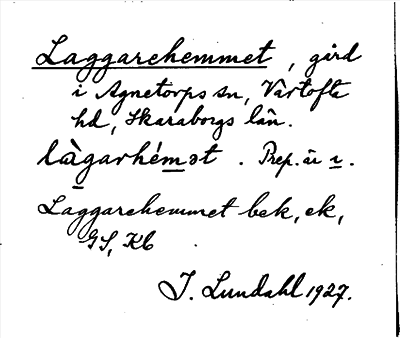 Laggarehemmet, gård
i Agnetorps sn, Vartofta
hd, Skaraborgs län.
làgarhémət. Prep. är ı.
Laggarehemmet bek, ek,
GS, Kb
I. Lundahl 1927.